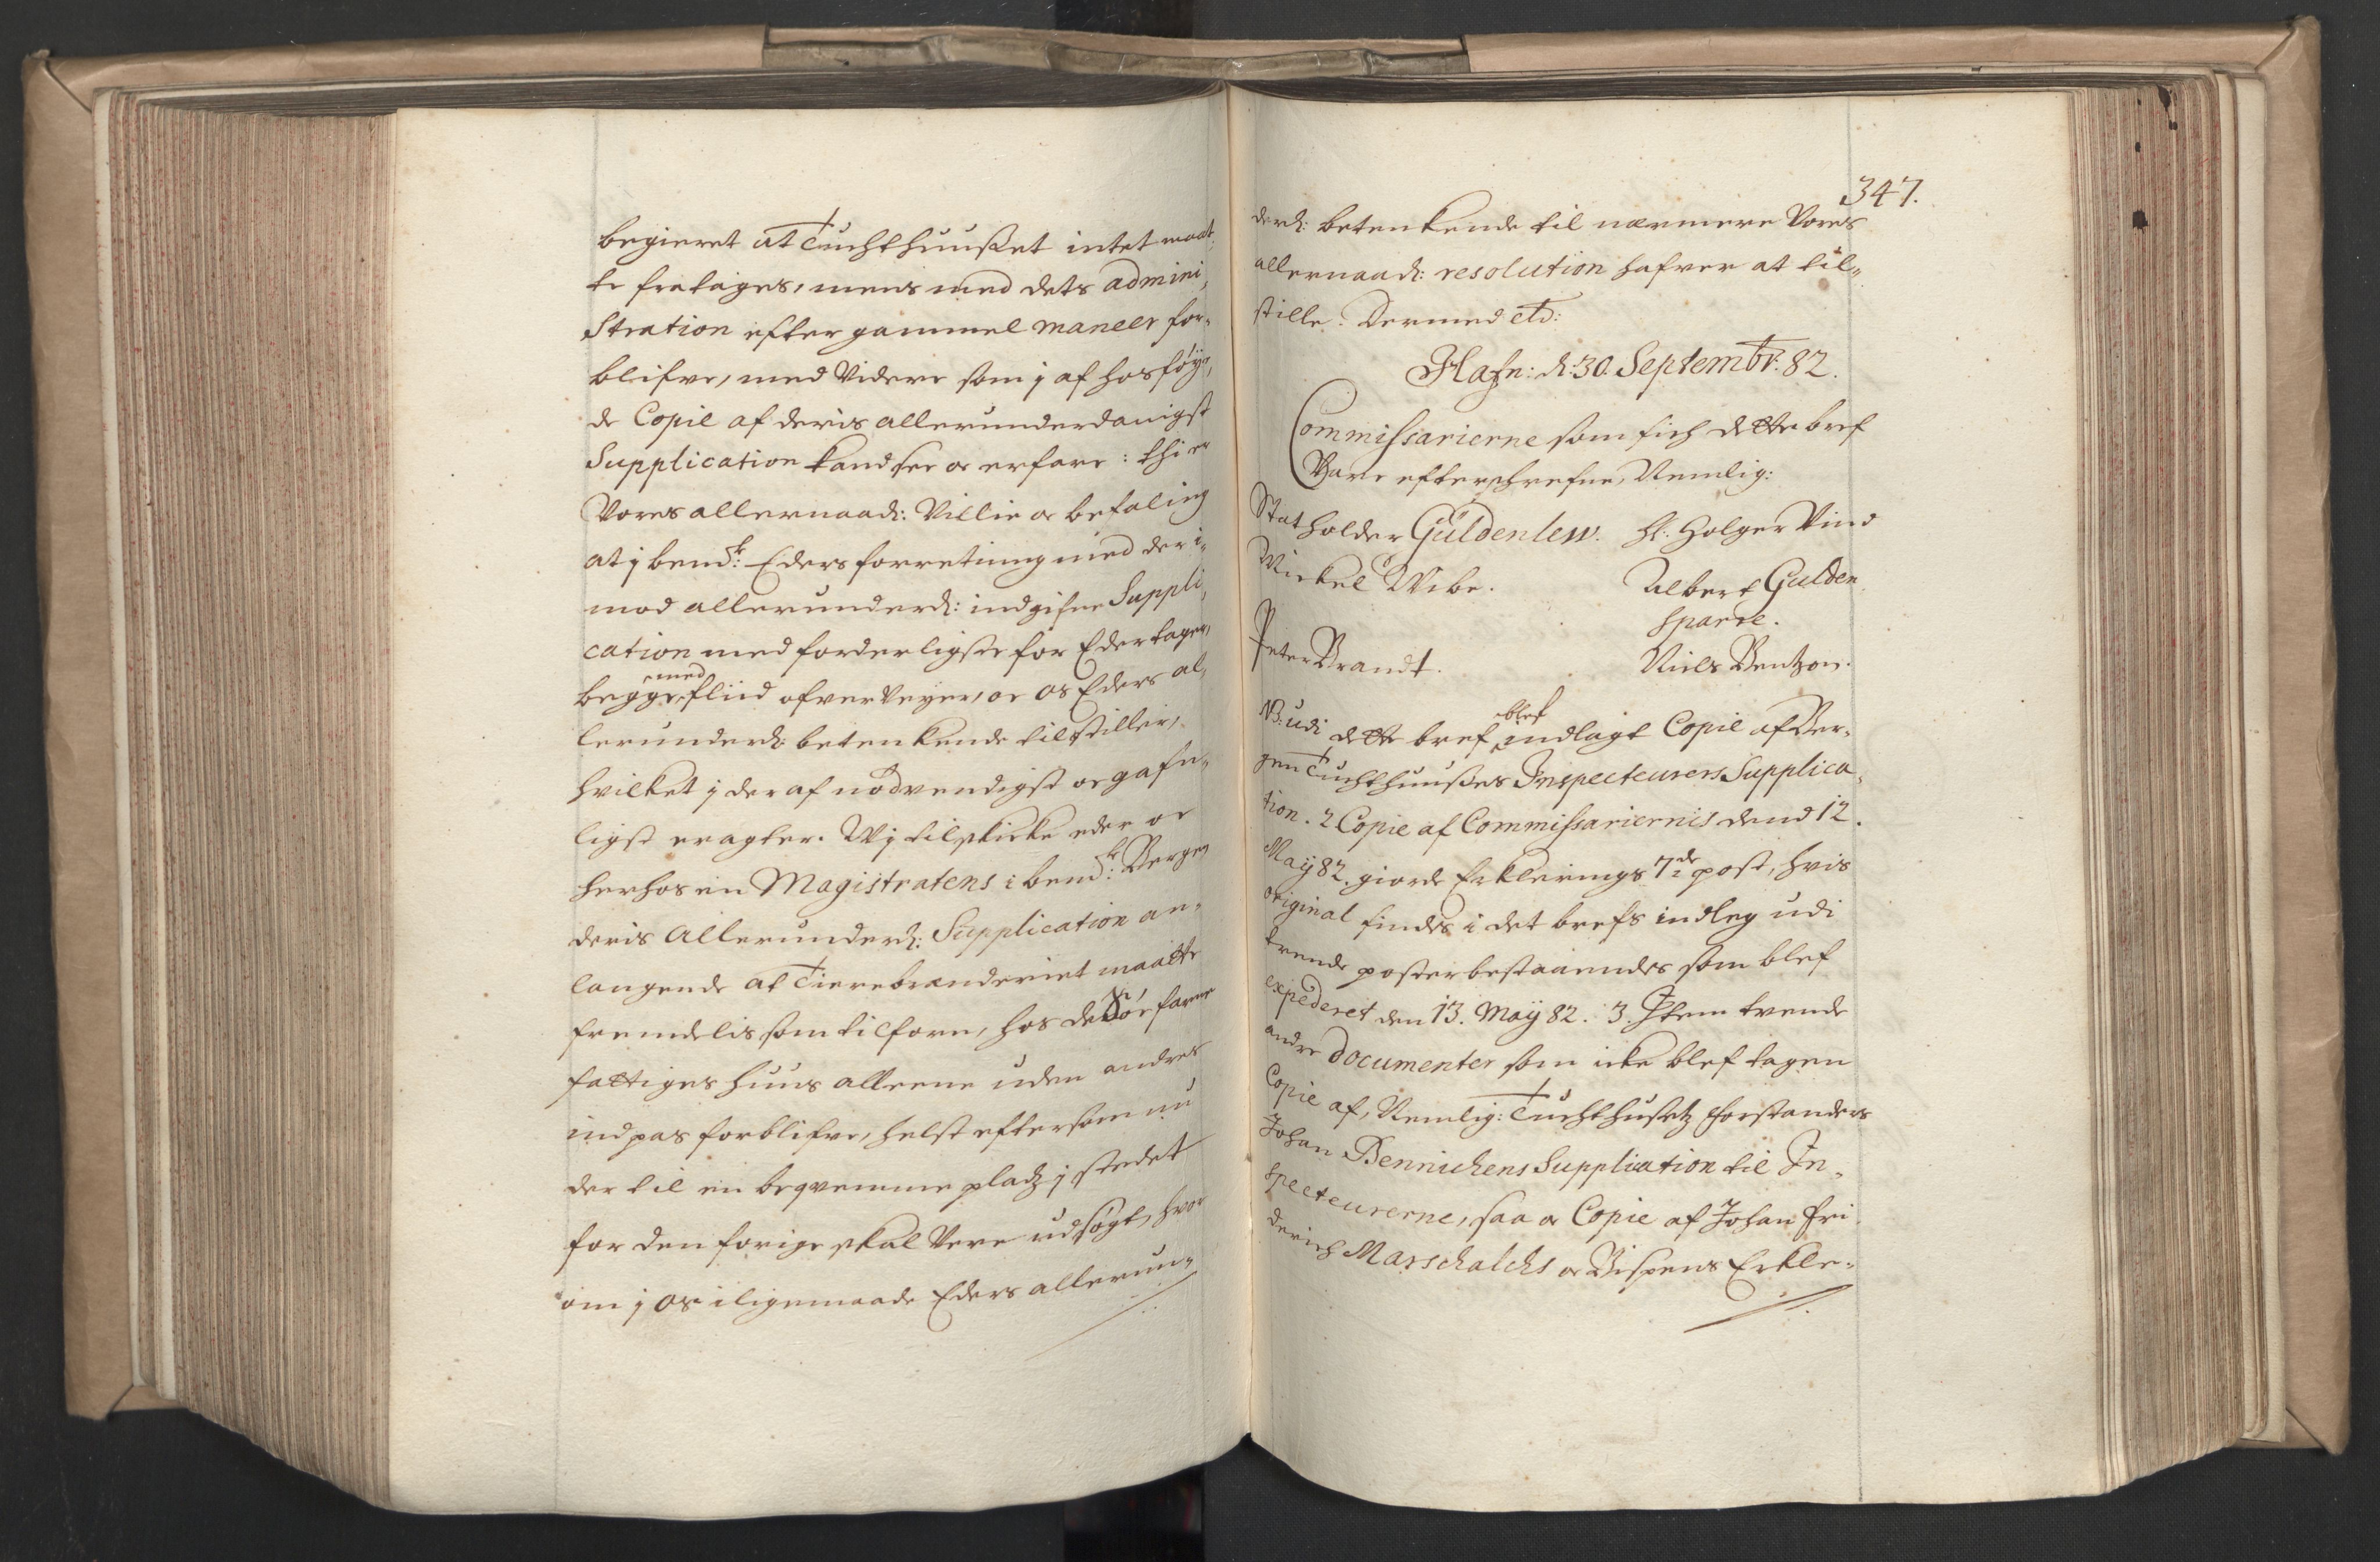 begieret at Tuchthuuset intet maat,
te fratages, mens med dets admini,
stration efter gammel maneer for-
blifve, med videre som j af hosføy,
de Copie af deris allerunderdanigst
Supplication kand see oc erfare: thi er
Vores allernaad: Villie oc befaling
at j bemd: Eders forretning med der i-
mod allerunderd: indgifne Suppli,
cation med forderligste for Eder tager,
begge med fliid ofverveyer, oc os Eders al,
lerunderd: betenkende tilstiller,
hvilket j deraf nødvendigst oc gafn-
ligst eragter. Wj tilskicke eder oc
herhos en Magistratens i bemd: Bergen
deris allerunderd: Supplication an-
langende at Tierebrænderiet maatte
fremdelis som tilforn, hos de Søefarne
fattiges huus alleene uden andres
indpas forblifve, helst eftersom nu
der til en beqvemme pladz j stedet
for den forige skal vere udsøgt, hvor
om j os iligemaade Eders allerun-
347.
derd: betenkende til nærmere Vores
allernaad: resolution hafver at til-
stille. Dermed etc:
Hafn: d: 30. Septembr: 82.
Commissarierne som fich dette bref
Vare efterschrefne, Nemlig:
Statholder Güldenlew. Hl: Holger Vind
Mickel Wibe. Albert Gulden
sparre.
Peter Brandt. Niels Bentzon.
NB: udi dette bref blef indlagt Copie af Ber-
gens Tuchthuuses Inspecteurers Supplica-
tion. 2 Copie af Commissariernis dend 12.
May 82. giorde Erklerings 7de post, hvis
original findes i det brefs indleg udi
trende poster bestaaendes som blef
expederet den 13. May 82. 3. Item tvende
andre documenter som icke blef tagen
Copie af, Nemlig: Tuchthusetz forstanders
Johan Bennichens Supplication til In-
specteurerne, saa oc Copie af Johan Fri
derich Marschalchs oc Bispens Erkle-